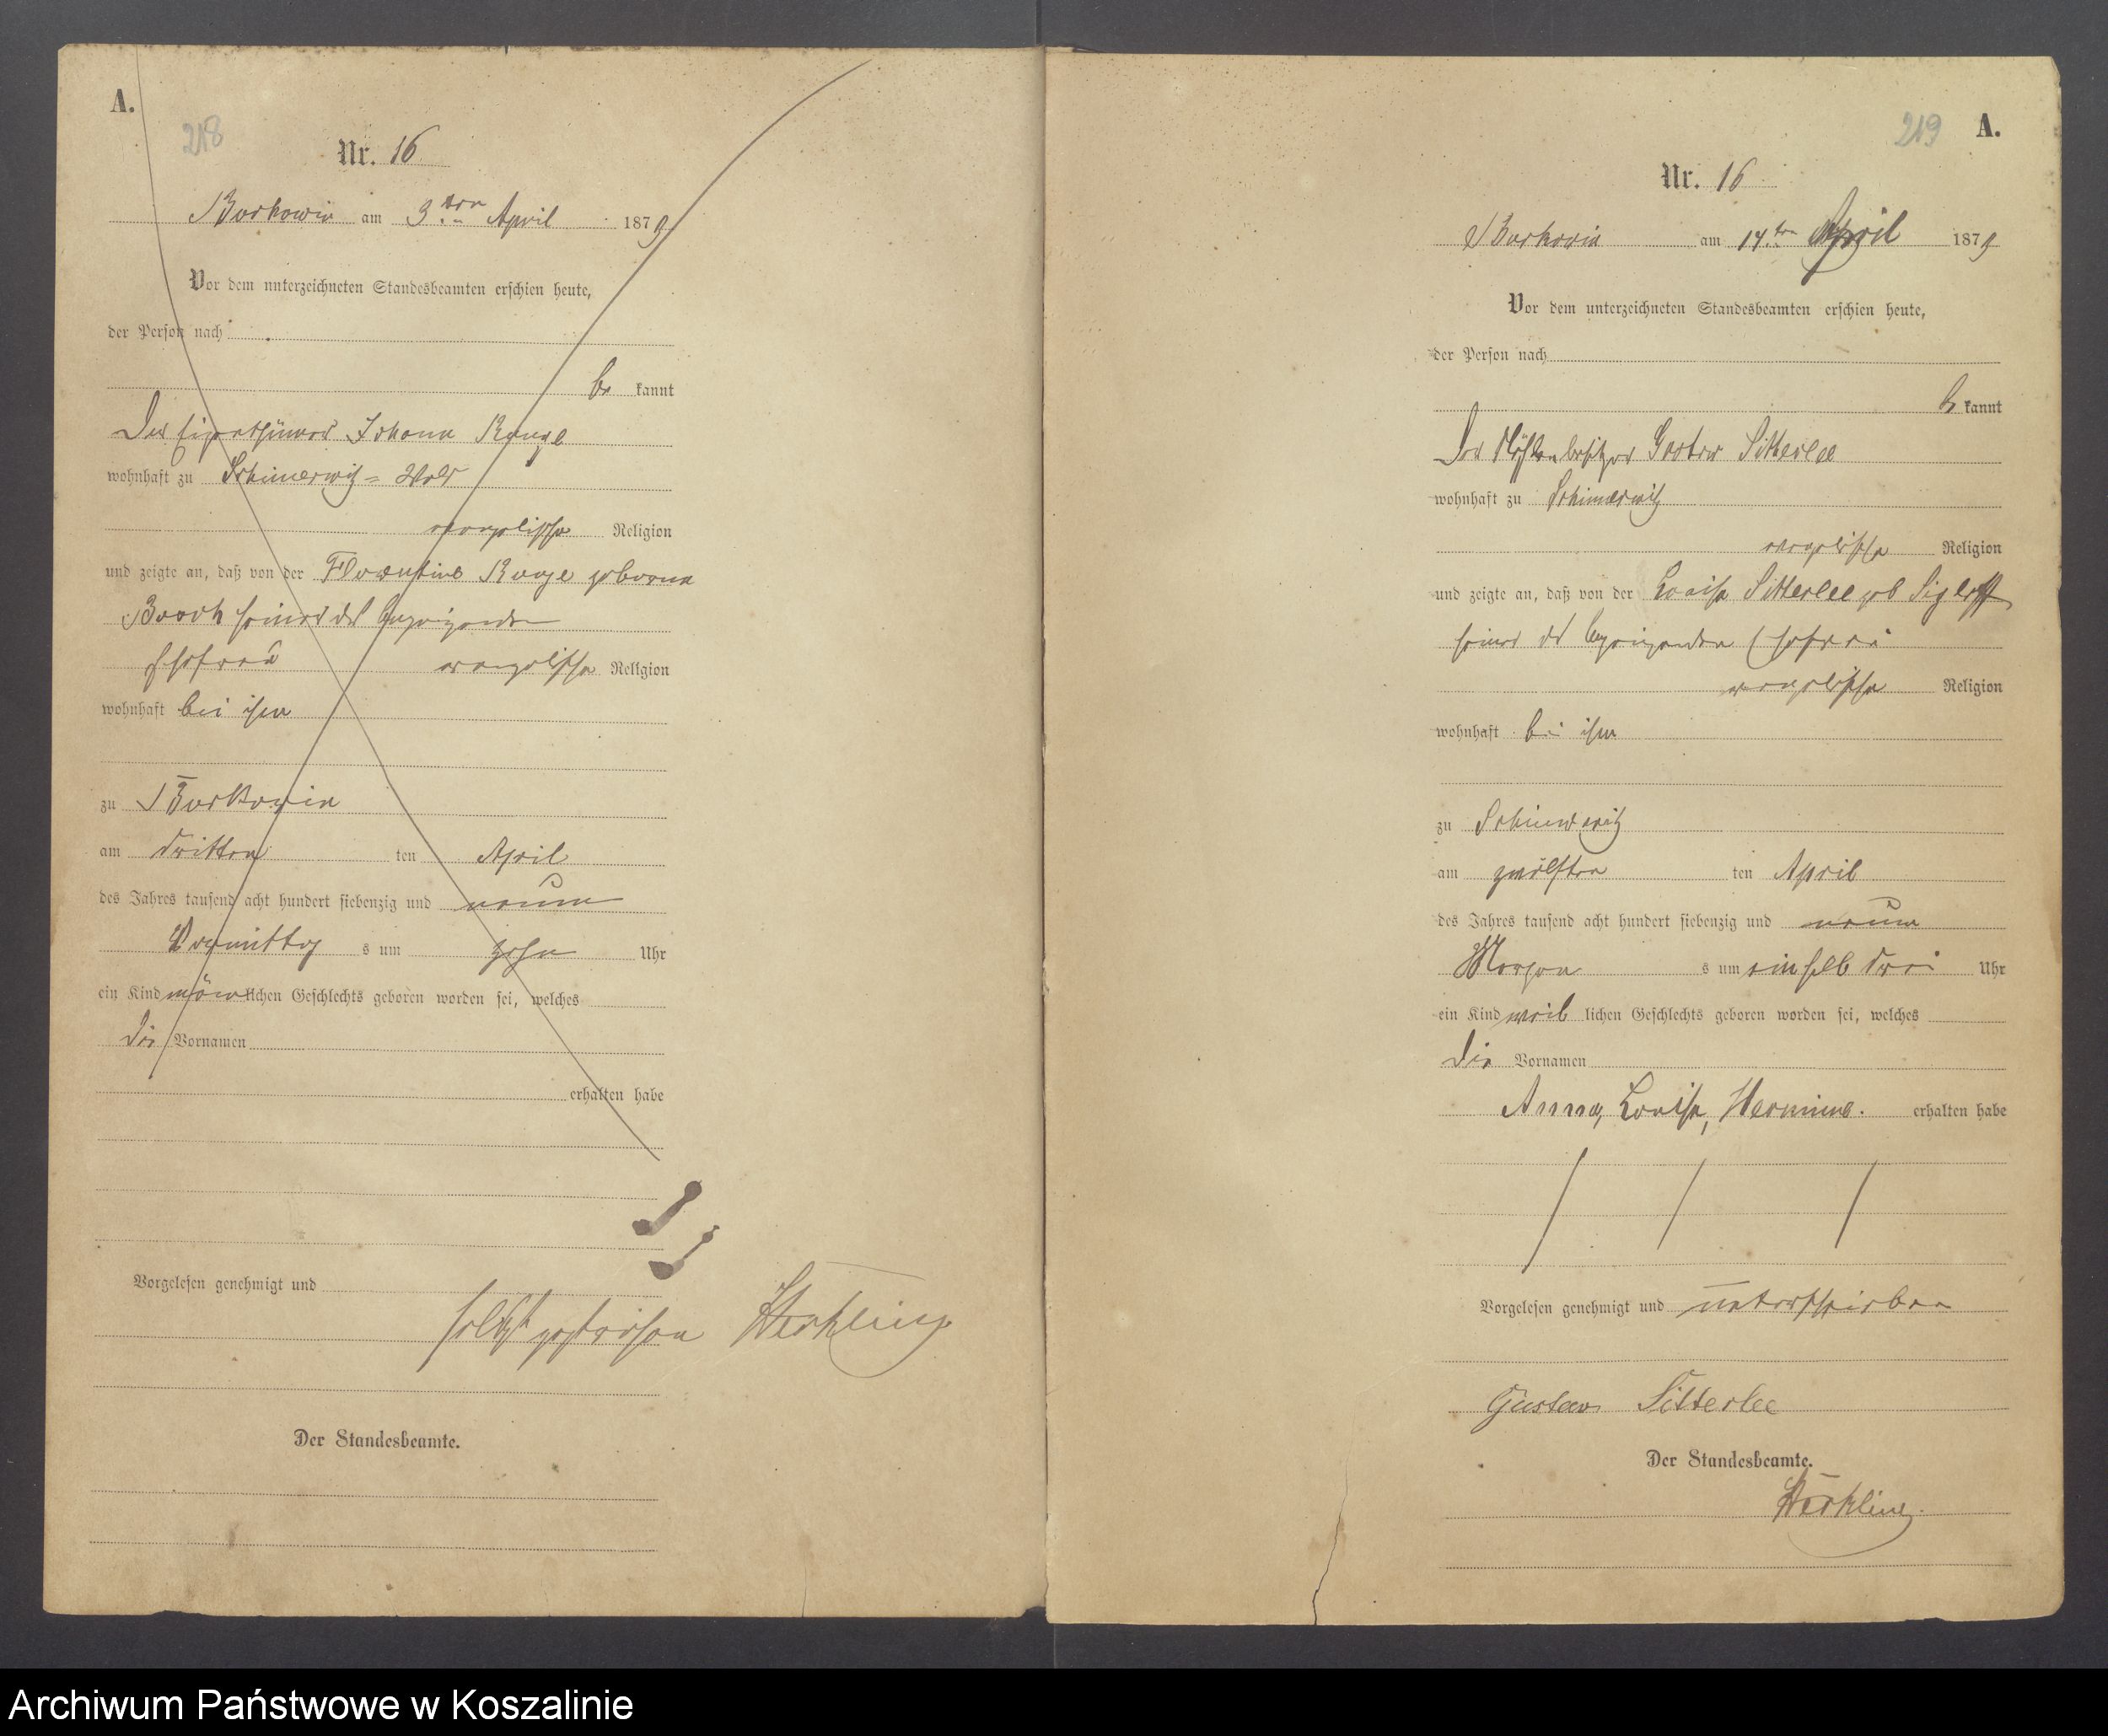 A.
218
Nr. 16
Borkowin am 3ten April 1879
Vor dem unterzeichneten Standesbeamten erschien heute,
der Person nach
be kannt
Der Eigenthümer Johann
wohnhaft zu Schimerwitz=
evangelischer Religion
und zeigte an, daß von der Florentine geborene
seiner des Anzeigenden
Ehefrau evangelischer Religion
wohnhaft bei ihm
zu Borkowin
am dritten ten April
des Jahres tausend acht hundert siebenzig und neun
Vormittag s um zehn Uhr
ein Kind männlichen Geschlechts geboren worden sei, welches
die Vornamen
erhalten habe
Vorgelesen genehmigt und
Der Standesbeamte.
219
A.
Nr. 16
Borkowin am 14ten April 1879
Vor dem unterzeichneten Standesbeamten erschien heute,
der Person nach
be kannt
Der Mühlenbesitzer Gustav Sitterlee
wohnhaft zu Schimerwitz
evangelischer Religion
und zeigte an, daß von der Louise Sitterlee geb
seiner des Anzeigenden Ehefrau
evangelischer Religion
wohnhaft bei ihm
zu Schimerwitz
am zwölften ten April
des Jahres tausend acht hundert siebenzig und neun
Morgen s um einhalb drei Uhr
ein Kind weib lichen Geschlechts geboren worden sei, welches
die Vornamen
Anna, Louise, Hermine. erhalten habe
Vorgelesen genehmigt und unterschrieben
Gustav Sitterlee
Der Standesbeamte.
Archiwum Państwowe w Koszalinie